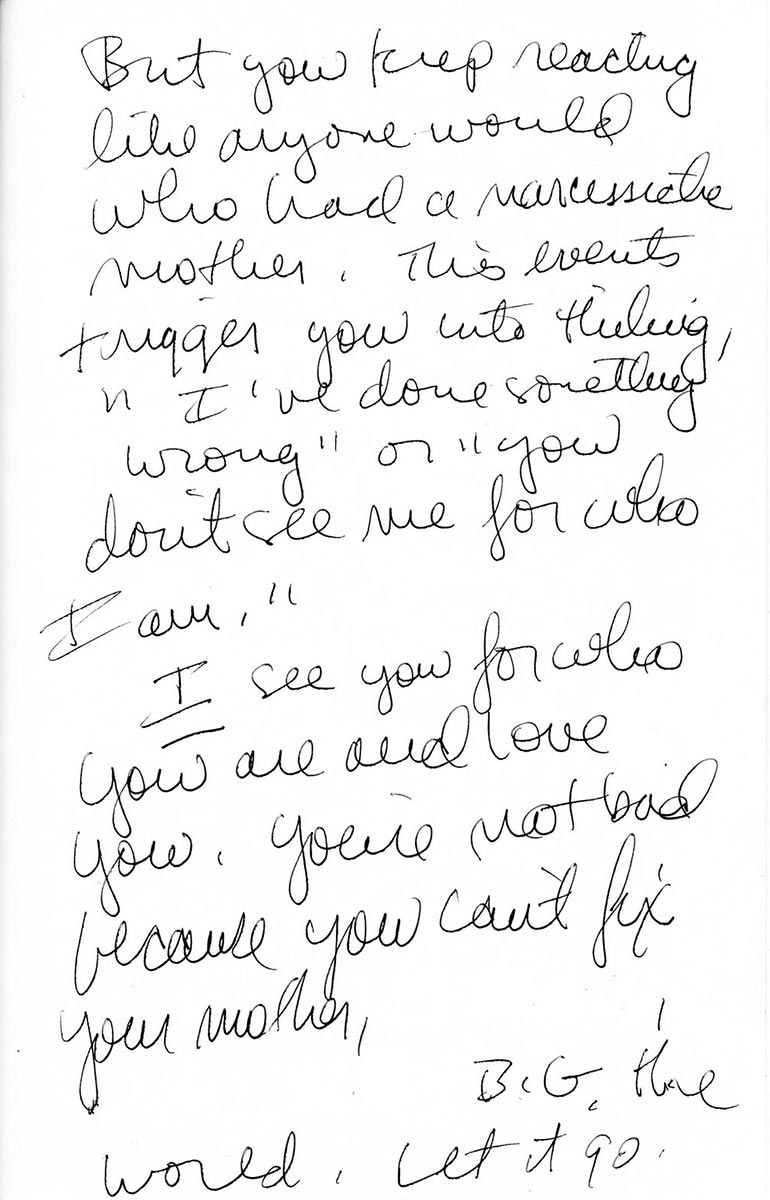 But you keep reacting
like anyone would
who had a narcessistic
mother. This events
trigger you into thinking,
"I've done something
wrong" or "you
don't see me for who
I am."
I see you for who
you are and love
you. You're not bad
because you can't fix
your mother,
B.G. the
world. Let it go.